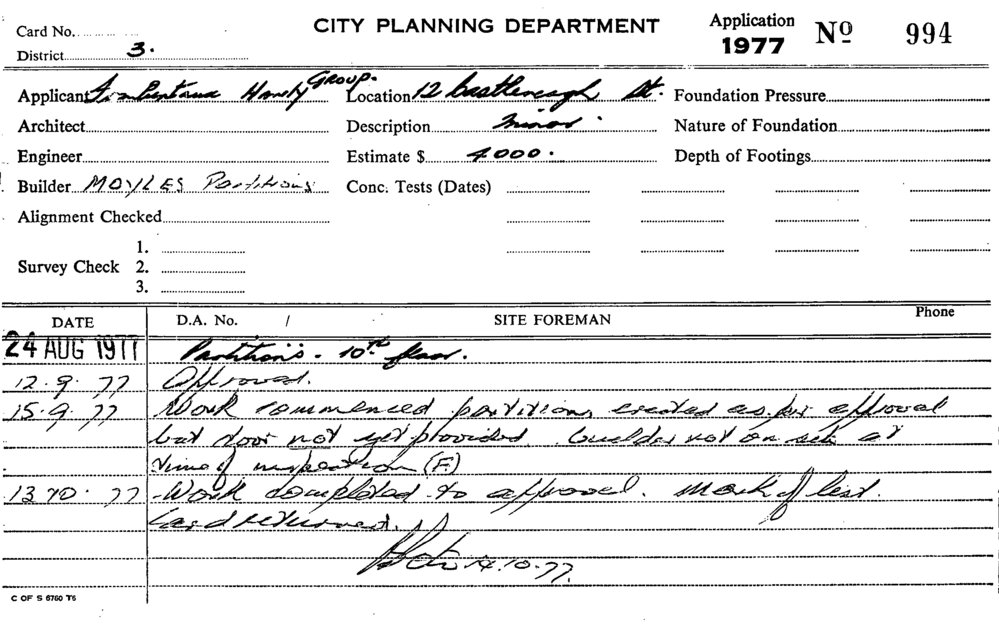 Card No.
CITY PLANNING DEPARTMENT
Application 1977 Nº 994
District 3.
Applicant Group. Location 12 Castlereagh St. Foundation Pressure
Architect Description Minor. Nature of Foundation
Engineer Estimate $ 4000. Depth of Footings
Builder MOYLES Partitions Conc. Tests (Dates)
Alignment Checked
1.
Survey Check 2.
3.
DATE D.A. No. / SITE FOREMAN Phone
24 AUG 1977 Partition's - 10th floor.
12.9.77 Approved.
15.9.77 Work commenced partitions erected as per approval
but door not yet provided builder not on site at
time of inspection (F)
13.10.77 Work completed to approval. Mark off list.
Card returned.
14.10.77.
C OF S 6760 T5